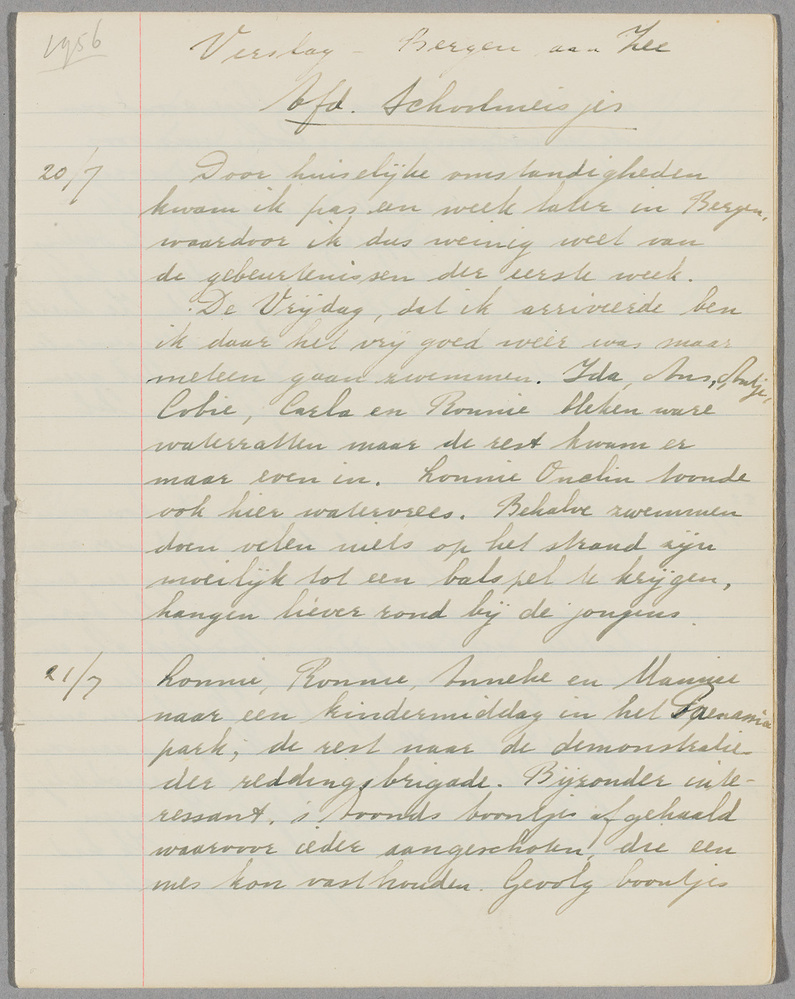 1956
Verslag - Bergen aan Zee
Afd. Schoolmeisjes
20/7 Door huiselijke omstandigheden
kwam ik pas een week later in Bergen,
waardoor ik dus weinig weet van
de gebeurtenissen der eerste week.
De Vrijdag, dat ik arriveerde ben
ik daar het vrij goed weer was maar
meteen gaan zwemmen. Ida, Ans, Antje,
Cobie, Carla en Ronnie bleken ware
waterratten maar de rest kwam er
maar even in. Lonnie Onclin toonde
ook hier watervrees. Behalve zwemmen
doen velen niets op het strand zijn
moeilijk tot een balspel te krijgen,
hangen liever rond bij de jongens.
21/7 Lonnie, Ronnie, Anneke en
naar een kindermiddag in het
park, de rest naar de demonstratie
der reddingsbrigade. Bijzonder inte-
ressant. 's Avonds boontjes afgehaald
waarvoor ieder aangeschoten, die een
mes kon vasthouden. Gevolg boontjes